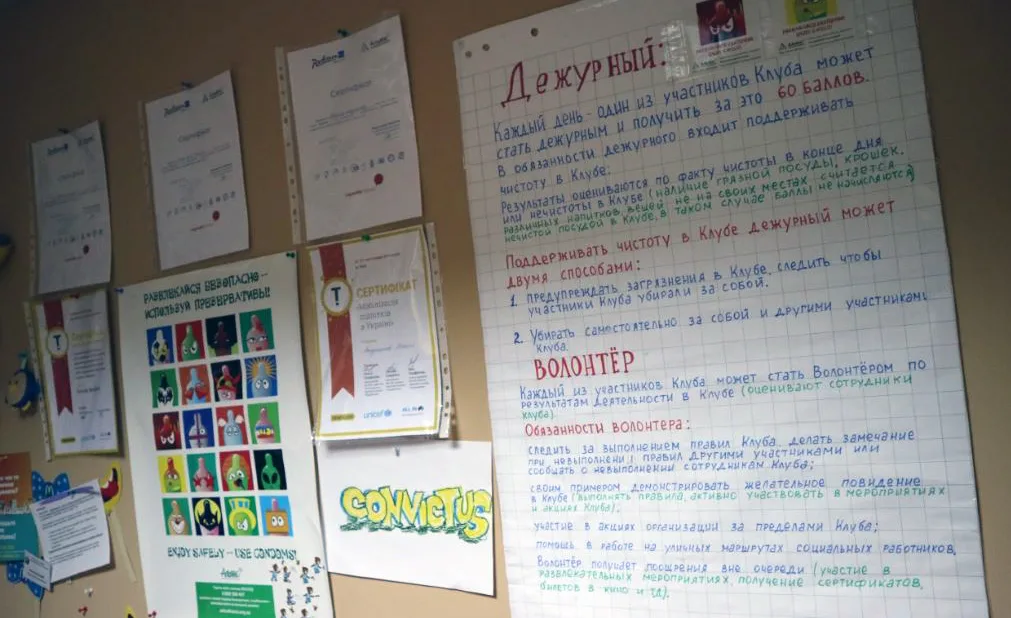 Сертификат
Сертификат
РАЗВЛЕКАЙСЯ БЕЗОПАСНО –
ИСПОЛЬЗУЙ ПРЕЗЕРВАТИВЫ!
ENJOY SAFELY – USE CONDOMS!
T
СЕРТИФІКАТ
в Україні
unicef
CONVICTUS
Дежурный:
Каждый день - один из участников Клуба может
стать дежурным и получить за это 60 баллов.
В обязанности дежурного входит поддерживать
чистоту в Клубе.
Результаты оцениваются по факту чистоты в конце дня
или нечистоты в Клубе (наличие грязной посуды, крошек,
различных напитков, вещей не на своих местах считается
нечистой посудой в Клубе, в таком случае баллы не начисляются)
Поддерживать чистоту в Клубе дежурный может
двумя способами:
1. Предупреждать загрязнения в Клубе, следить чтобы
участники Клуба убирали за собой.
2. Убирать самостоятельно за собой и другими участниками
Клуба.
ВОЛОНТЁР
Каждый из участников Клуба может стать Волонтёром по
результатам деятельности в Клубе (оценивают сотрудники
клуба).
Обязанности волонтера:
следить за выполнением правил Клуба, делать замечание
при невыполнени правил другими участниками или
сообщать о невыполнении сотрудникам Клуба;
своим примером демонстрировать желательное поведение
в Клубе (выполнять правила, активно участвовать в мероприятиях
и акциях Клуба);
участие в акциях организации за пределами Клуба;
помощь в работе на уличных маршрутах социальных работников.
Волонтёр получает поощрения вне очереди (участие в
развлекательных мероприятиях, получение сертификатов,
билетов в кино и тд).